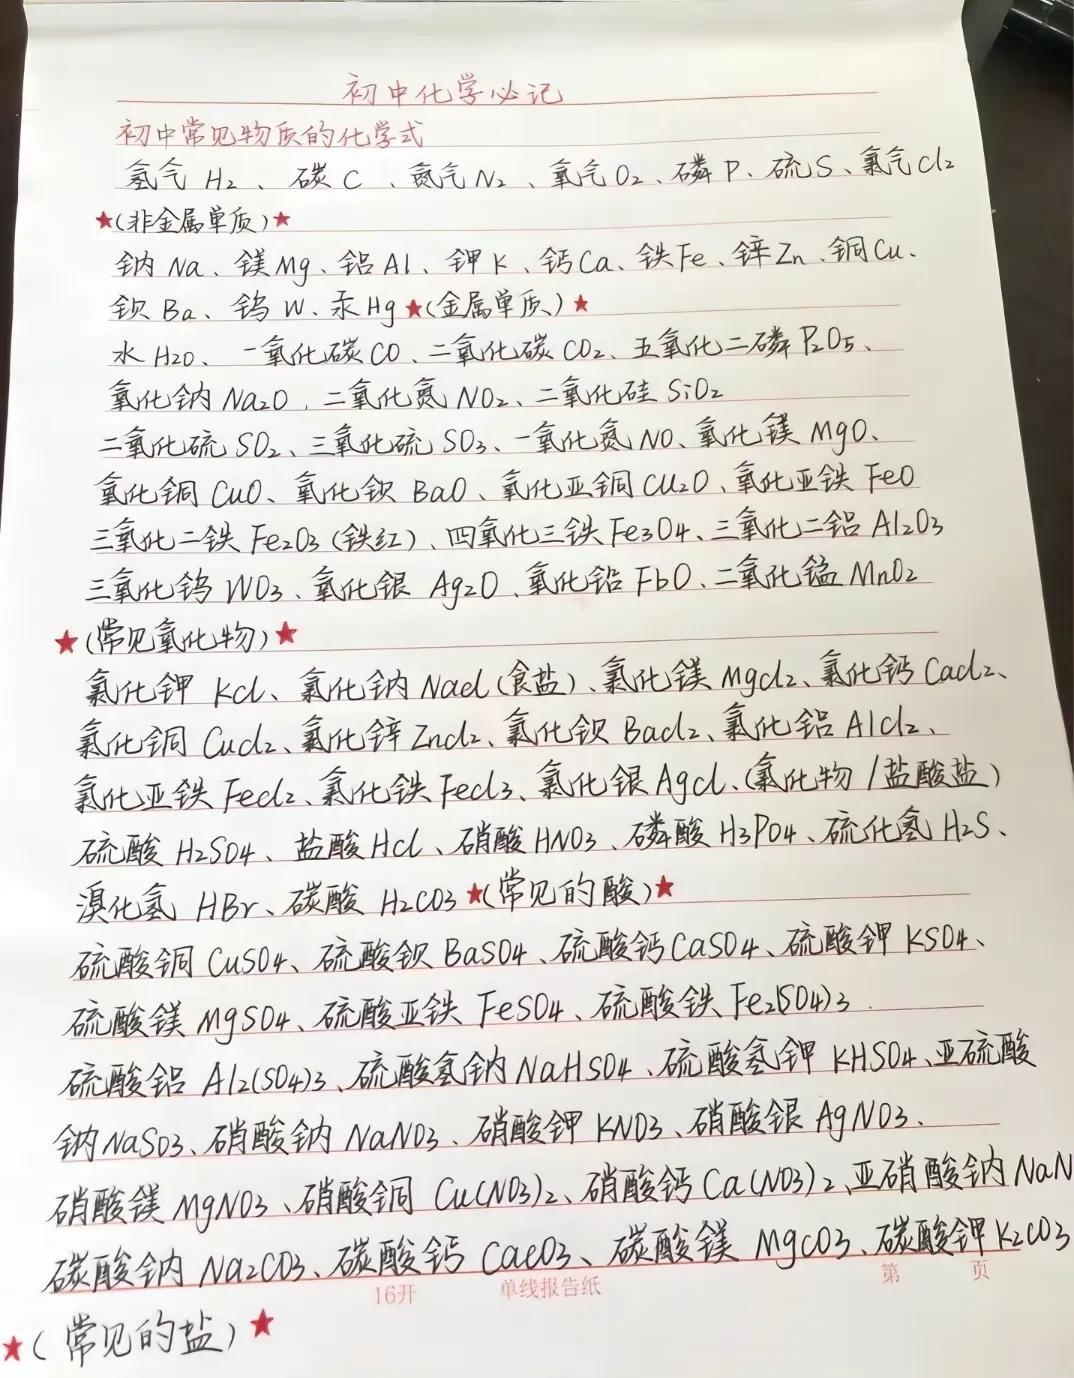 初中化学必记
初中常见物质的化学式
氢气 H2、碳 C、氮气 N2、氧气 O2、磷 P、硫 S、氯气 Cl2
★(非金属单质)★
钠 Na、镁 Mg、铝 Al、钾 K、钙 Ca、铁 Fe、锌 Zn、铜 Cu、
钡 Ba、钨 W、汞 Hg ★(金属单质)★
水 H2O、一氧化碳 CO、二氧化碳 CO2、五氧化二磷 P2O5、
氧化钠 Na2O、二氧化氮 NO2、二氧化硅 SiO2
二氧化硫 SO2、三氧化硫 SO3、一氧化氮 NO、氧化镁 MgO、
氧化铜 CuO、氧化钡 BaO、氧化亚铜 Cu2O、氧化亚铁 FeO
三氧化二铁 Fe2O3 (铁红)、四氧化三铁 Fe3O4、三氧化二铝 Al2O3
三氧化钨 WO3、氧化银 Ag2O、氧化铅 FbO、二氧化锰 MnO2
★(常见氧化物)★
氯化钾 Kcl、氯化钠 Nacl (食盐)、氯化镁 Mgcl2、氯化钙 Cacl2、
氯化铜 Cucl2、氯化锌 Zncl2、氯化钡 Bacl2、氯化铝 Alcl2、
氯化亚铁 Fecl2、氯化铁 Fecl3、氯化银 Agcl、(氯化物/盐酸盐)
硫酸 H2SO4、盐酸 Hcl、硝酸 HNO3、磷酸 H3PO4、硫化氢 H2S、
溴化氢 HBr、碳酸 H2CO3 ★(常见的酸)★
硫酸铜 CuSO4、硫酸钡 BaSO4、硫酸钙 CaSO4、硫酸钾 KSO4、
硫酸镁 MgSO4、硫酸亚铁 FeSO4、硫酸铁 Fe2(SO4)3
硫酸铝 Al2(SO4)3、硫酸氢钠 NaHSO4、硫酸氢钾 KHSO4、亚硫酸
钠 NaSO3、硝酸钠 NaNO3、硝酸钾 KNO3、硝酸银 AgNO3、
硝酸镁 MgNO3、硝酸铜 Cu(NO3)2、硝酸钙 Ca(NO3)2、亚硝酸钠 NaN
碳酸钠 Na2CO3、碳酸钙 CaCO3、碳酸镁 MgCO3、碳酸钾 K2CO3
16开 单线报告纸 第 页
★(常见的盐)★